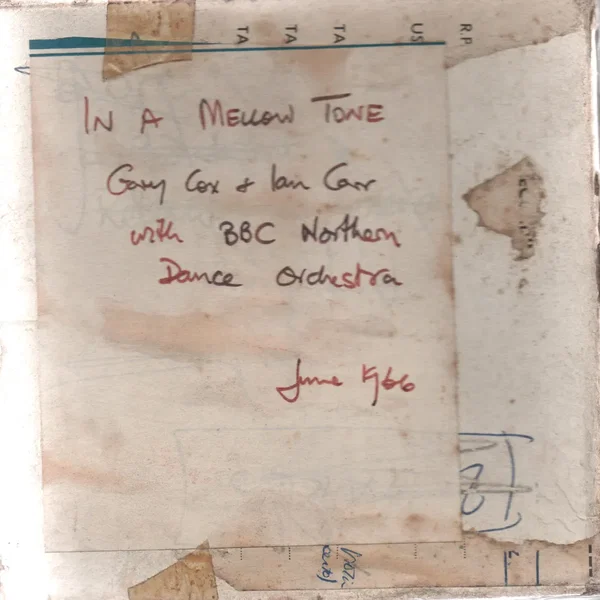 TA TA TA US R.P.
IN A MELLOW TONE
Gary Cox & Ian Carr
with BBC Northern
Dance Orchestra
June 1966